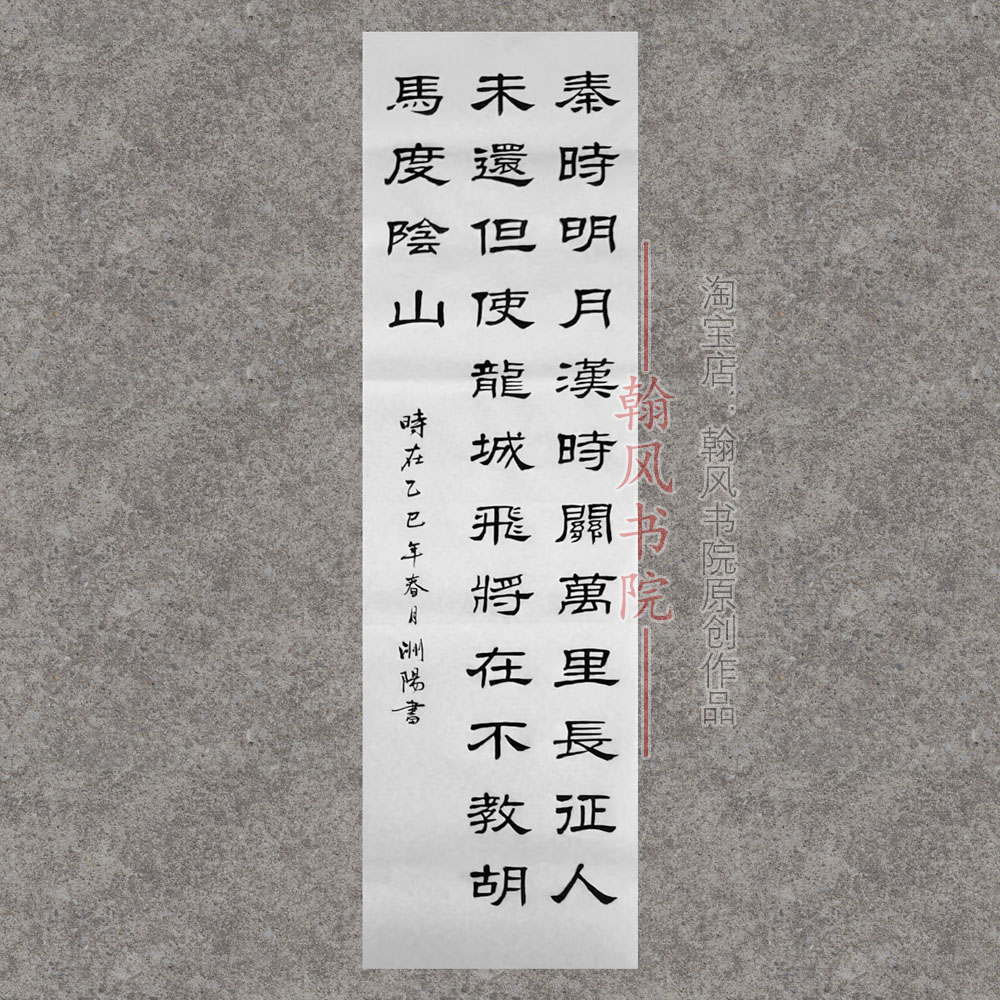 秦時明月漢時關萬里長征人
未還但使龍城飛將在不教胡
馬度陰山
時在乙巳年春月洲陽書
翰风书院
淘宝店：翰风书院原创作品